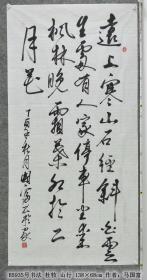 遠上寒山石徑斜白雲
生處有人家停車坐愛
楓林晚霜葉紅於二
月花
丁酉年秋月國富書於
BS935号书法 杜牧 山行 138×68cm 作者：马国富